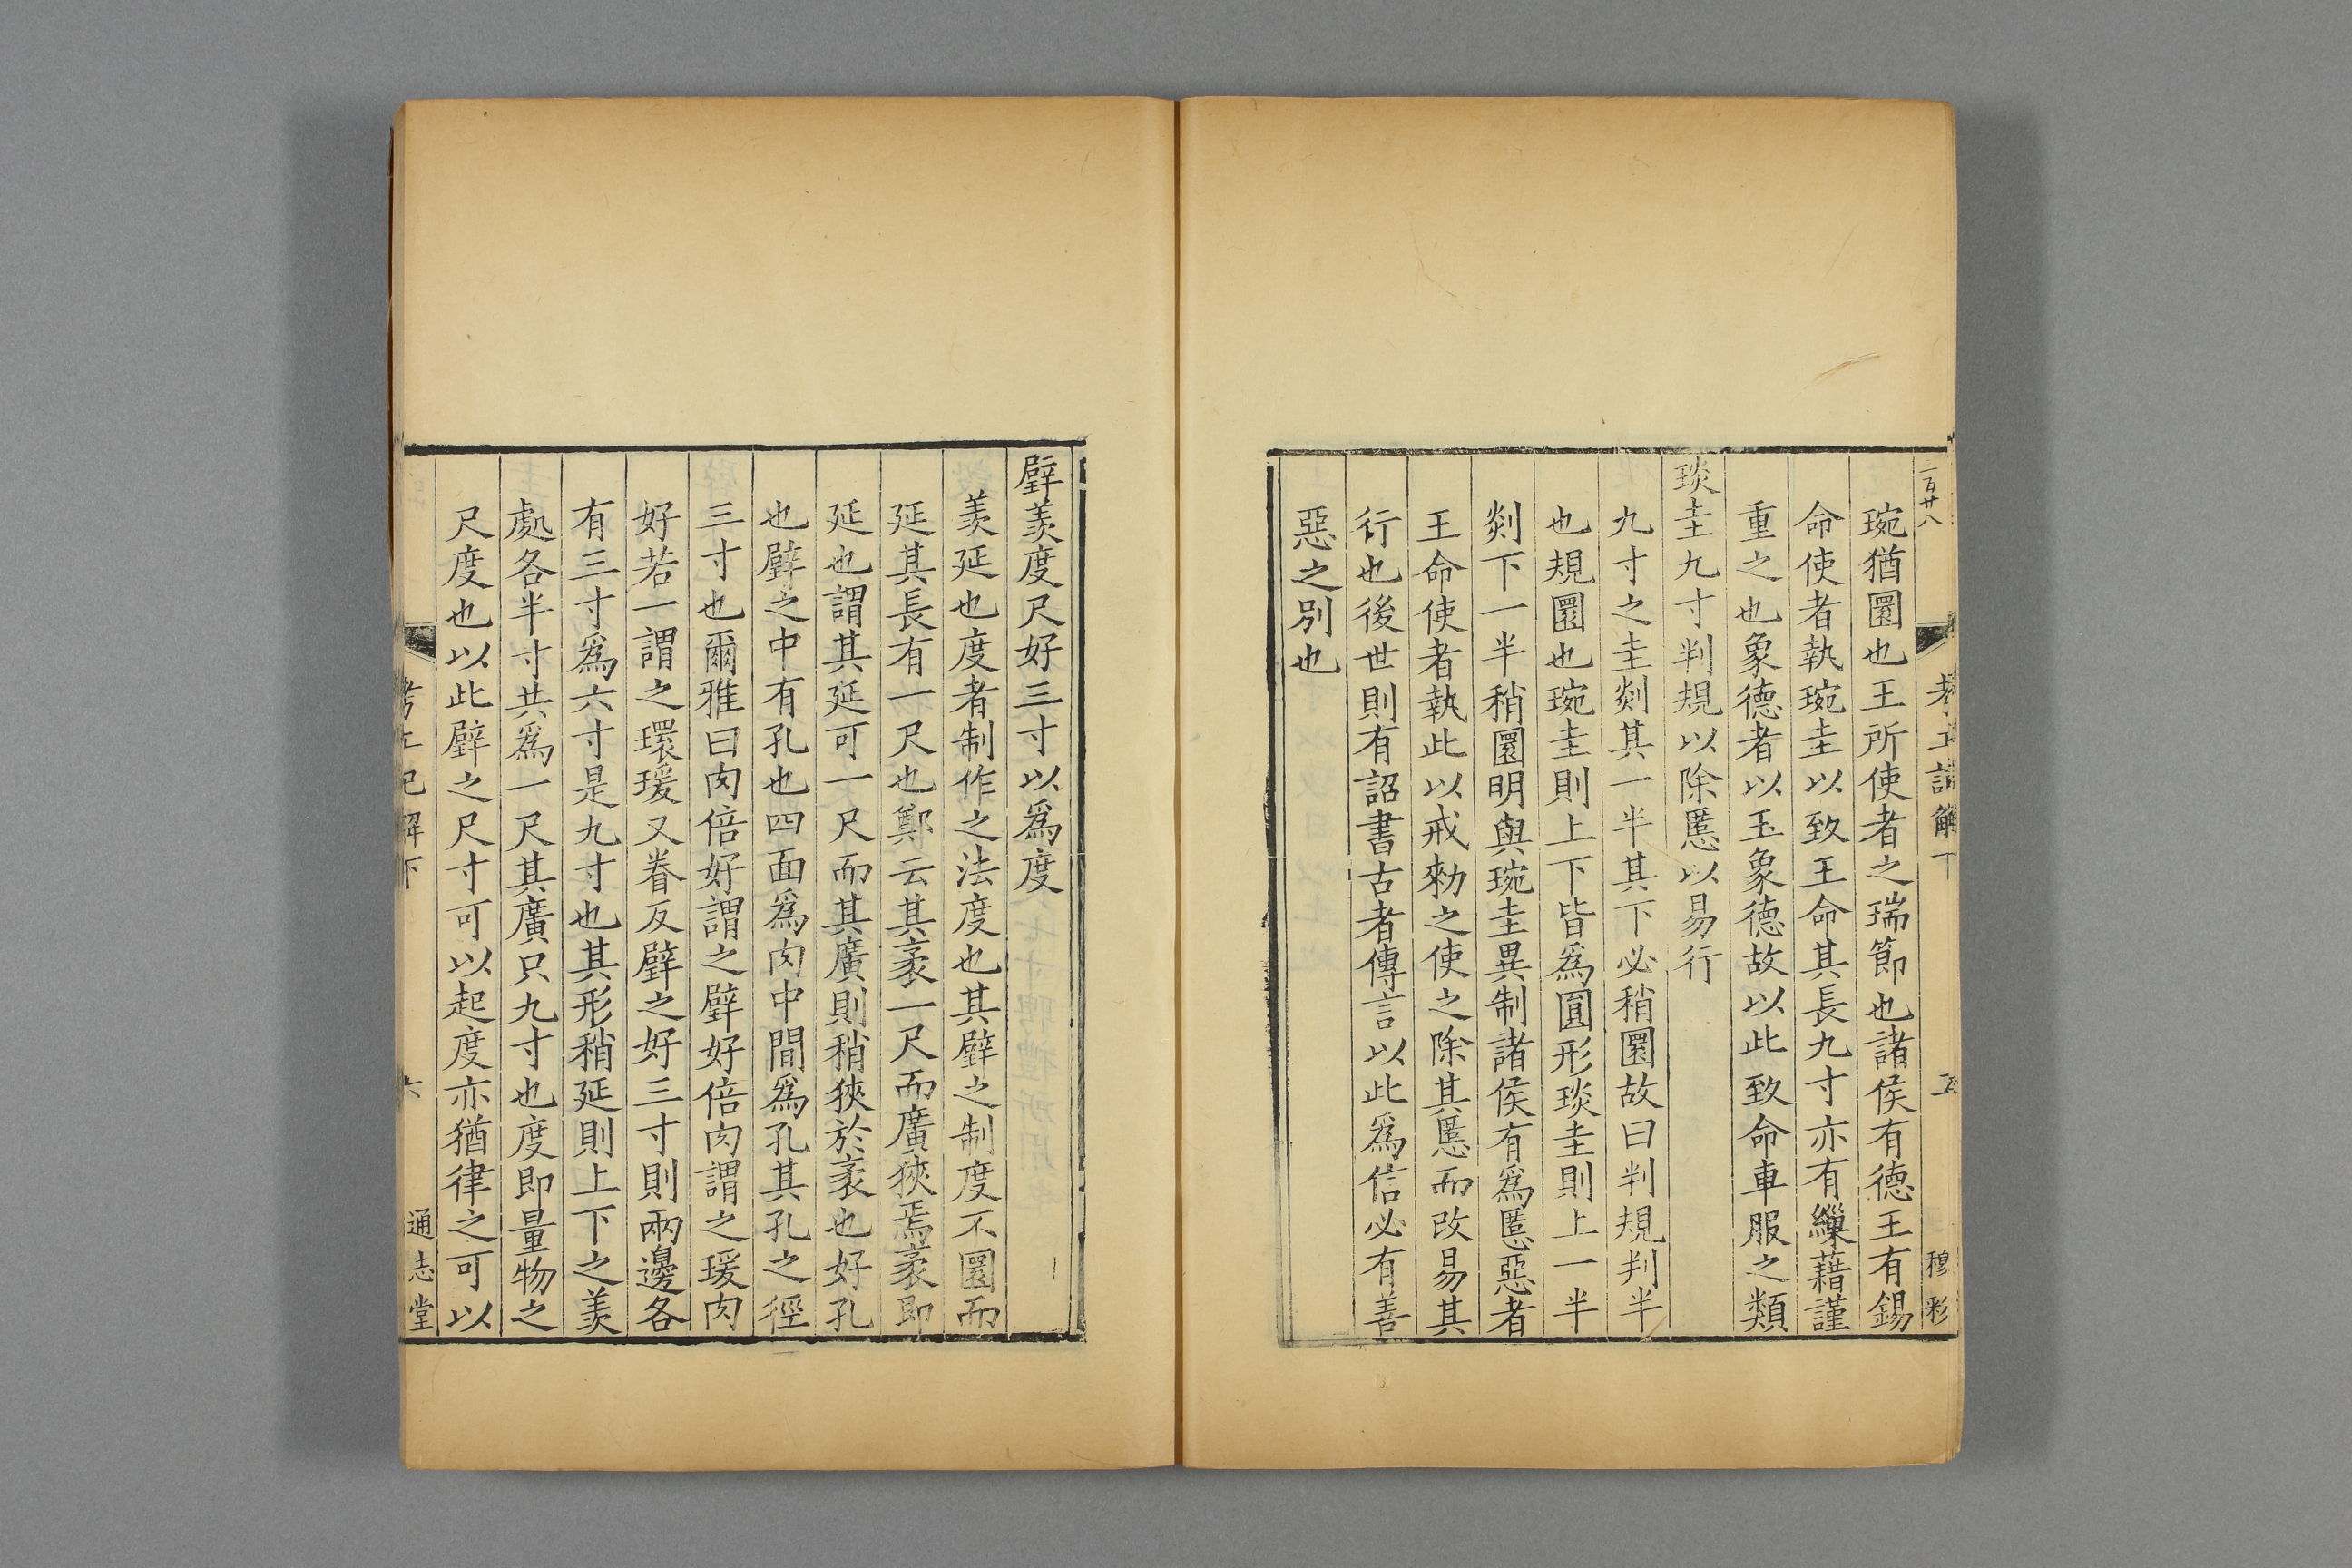 一百廿八
考工記解下
五
穆彩
琬猶圜也王所使者之瑞節也諸侯有德王有錫
命使者執琬圭以致王命其長九寸亦有繅藉謹
重之也象德者以玉象德故以此致命車服之類
琰圭九寸判規以除慝以易行
九寸之圭剡其一半其下必稍圜故曰判規判半
也規圜也琬圭則上下皆爲圓形琰圭則上一半
剡下一半稍圜明與琬圭異制諸侯有爲慝惡者
王命使者執此以戒勑之使之除其慝而改易其
行也後世則有詔書古者傳言以此爲信必有善
惡之別也
璧羨度尺好三寸以爲度
羨延也度者制作之法度也其璧之制度不圜而
延其長有一尺也鄭云其袤一尺而廣狹焉袤即
延也謂其延可一尺而其廣則稍狹於袤也好孔
也璧之中有孔也四面爲肉中間爲孔其孔之徑
三寸也爾雅曰肉倍好謂之璧好倍肉謂之瑗肉
好若一謂之環瑗又眷反璧之好三寸則兩邊各
有三寸爲六寸是九寸也其形稍延則上下之羨
處各半寸共爲一尺其廣只九寸也度即量物之
尺度也以此璧之尺寸可以起度亦猶律之可以
考工記解下
六
通志堂